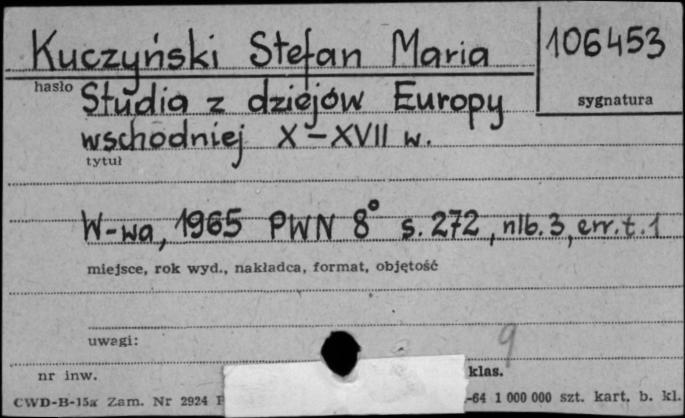 Kuczyński Stefan Maria
106453
hasło
sygnatura
Studia z dziejów Europy
wschodniej X-XVII w.
tytuł
W-wa, 1965 PWN 8° s. 272, nlb. 3, err. t. 1
miejsce, rok wyd., nakładca, format, objętość
uwagi:
9
nr inw.
klas.
CWD-B-15a Zam. Nr 2924
-64 1 000 000 szt. kart. b. kl.